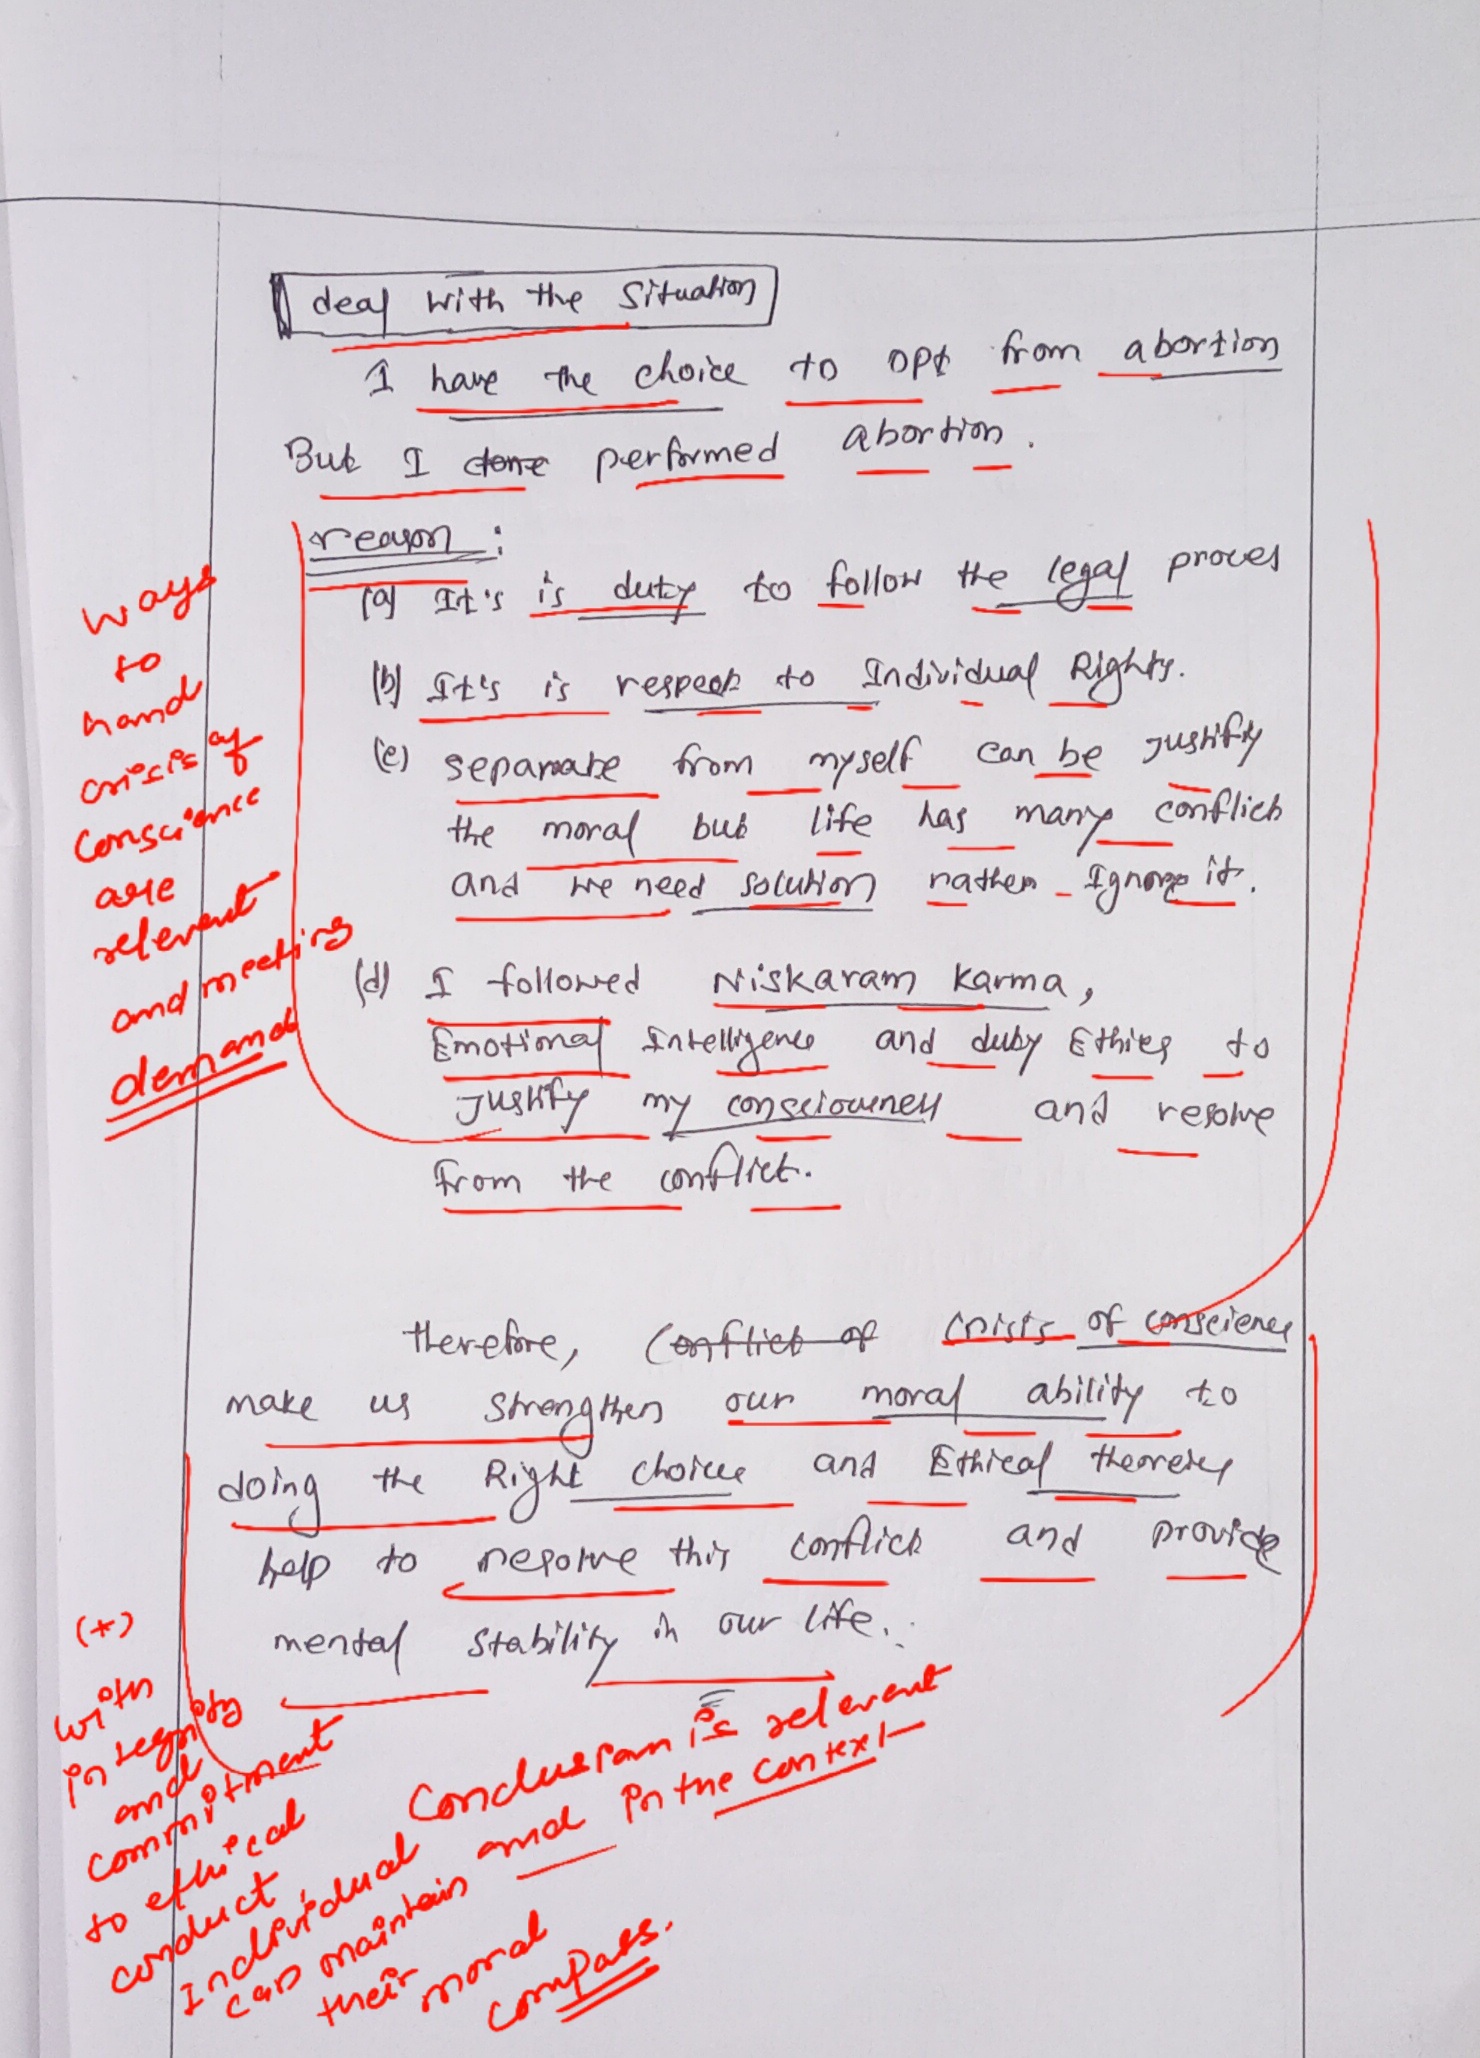 deal with the situation
I have the choice to opt from abortion
But I done performed abortion.
reason :
(a) It's is duty to follow the legal proces
(b) It's is respect to Individual Rights.
(c) separate from myself can be justify
the moral but life has many conflict
and we need solution rather Ignore it.
(d) I followed Niskaram Karma,
Emotional Intelligence and duty Ethics to
Justify my consciousness and resolve
from the conflict.
ways
to
hand
crisis of
conscience
are
relevent
and meeting
demand
therefore, Conflict of crisis of conscience
make us strengthen our moral ability to
doing the Right choice and Ethical theories
help to resolve this conflict and provide
mental stability in our life..
(*)
with
integrity
and
commitment
to ethical
conduct,
Individual
can maintain
their moral
compass.
Conclusion is relevent
and in the context